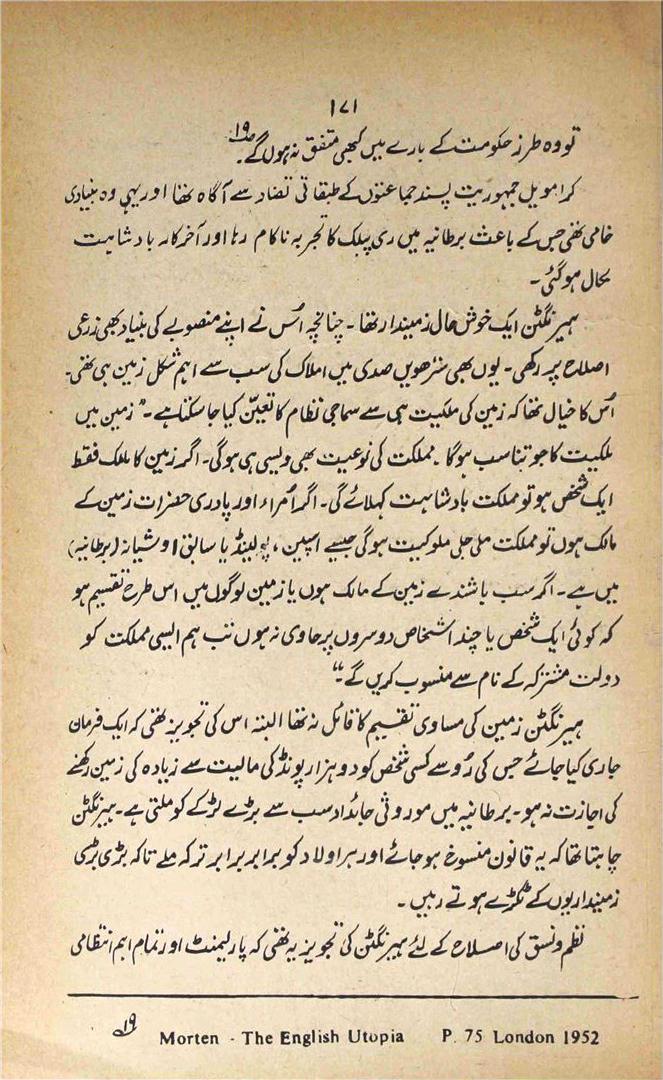 ۱۷۱
تو وہ طرز حکومت کے بارے میں کبھی متفق نہ ہوں گے۔ ۱۹
کرامویل جمہوریت پسند جماعتوں کے طبقاتی تضاد سے آگاہ تھا اور یہی وہ بنیادی
خامی تھی جس کے باعث برطانیہ میں ری پبلک کا تجربہ ناکام رہا اور آخرکار بادشاہت
بحال ہوگئی۔
ہیرنگٹن ایک خوش حال زمیندار تھا۔ چنانچہ اُس نے اپنے منصوبے کی بنیاد بھی زرعی
اصلاح پر رکھی۔ یوں بھی سترھویں صدی میں املاک کی سب سے اہم شکل زمین ہی تھی۔
اُس کا خیال تھا کہ زمین کی ملکیت ہی سے سماجی نظام کا تعیّن کیا جا سکتا ہے۔ ”زمین میں
ملکیت کا جو تناسب ہوگا۔ مملکت کی نوعیت بھی ویسی ہی ہوگی۔ اگر زمین کا مالک فقط
ایک شخص ہو تو مملکت بادشاہت کہلائے گی۔ اگر اُمراء اور پادری حضرات زمین کے
مالک ہوں تو مملکت ملی جلی ملوکیت ہوگی جیسے اسپین، پولینڈ یا سابق اوشیانہ (برطانیہ)
میں ہے۔ اگر سب باشندے زمین کے مالک ہوں یا زمین لوگوں میں اس طرح تقسیم ہو
کہ کوئی ایک شخص یا چند اشخاص دوسروں پر حاوی نہ ہوں تب ہم ایسی مملکت کو
دولت مشترکہ کے نام سے منسوب کریں گے۔“
ہیرنگٹن زمین کی مساوی تقسیم کا قائل نہ تھا البتہ اس کی تجویز تھی کہ ایک فرمان
جاری کیا جائے جس کی رُو سے کسی شخص کو دو ہزار پونڈ کی مالیت سے زیادہ کی زمین رکھنے
کی اجازت نہ ہو۔ برطانیہ میں موروثی جائداد سب سے بڑے لڑکے کو ملتی ہے۔ ہیرنگٹن
چاہتا تھا کہ یہ قانون منسوخ ہو جائے اور ہر اولاد کو برابر برابر ترکہ ملے تاکہ بڑی بڑی
زمینداریوں کے ٹکڑے ہوتے رہیں۔
نظم و نسق کی اصلاح کے لئے ہیرنگٹن کی تجویز یہ تھی کہ پارلیمنٹ اور تمام اہم انتظامی
۱۹ Morten - The English Utopia P. 75 London 1952